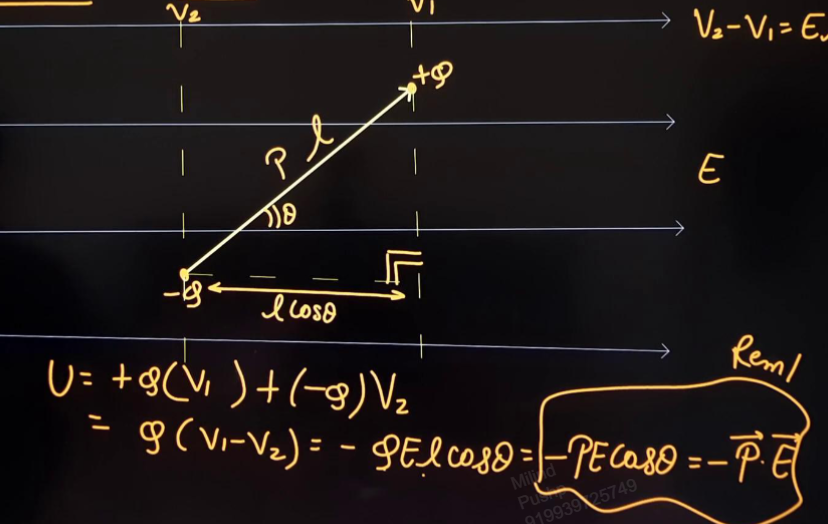 V₂ V₁
V₂-V₁=E
+Q
P l
E
θ
-Q
l cosθ
Rem/
U= +Q(V₁ )+(-Q)V₂
= Q(V₁-V₂)= - QElcosθ= -PEcosθ = -P⃗.E⃗
Milind
919939725749